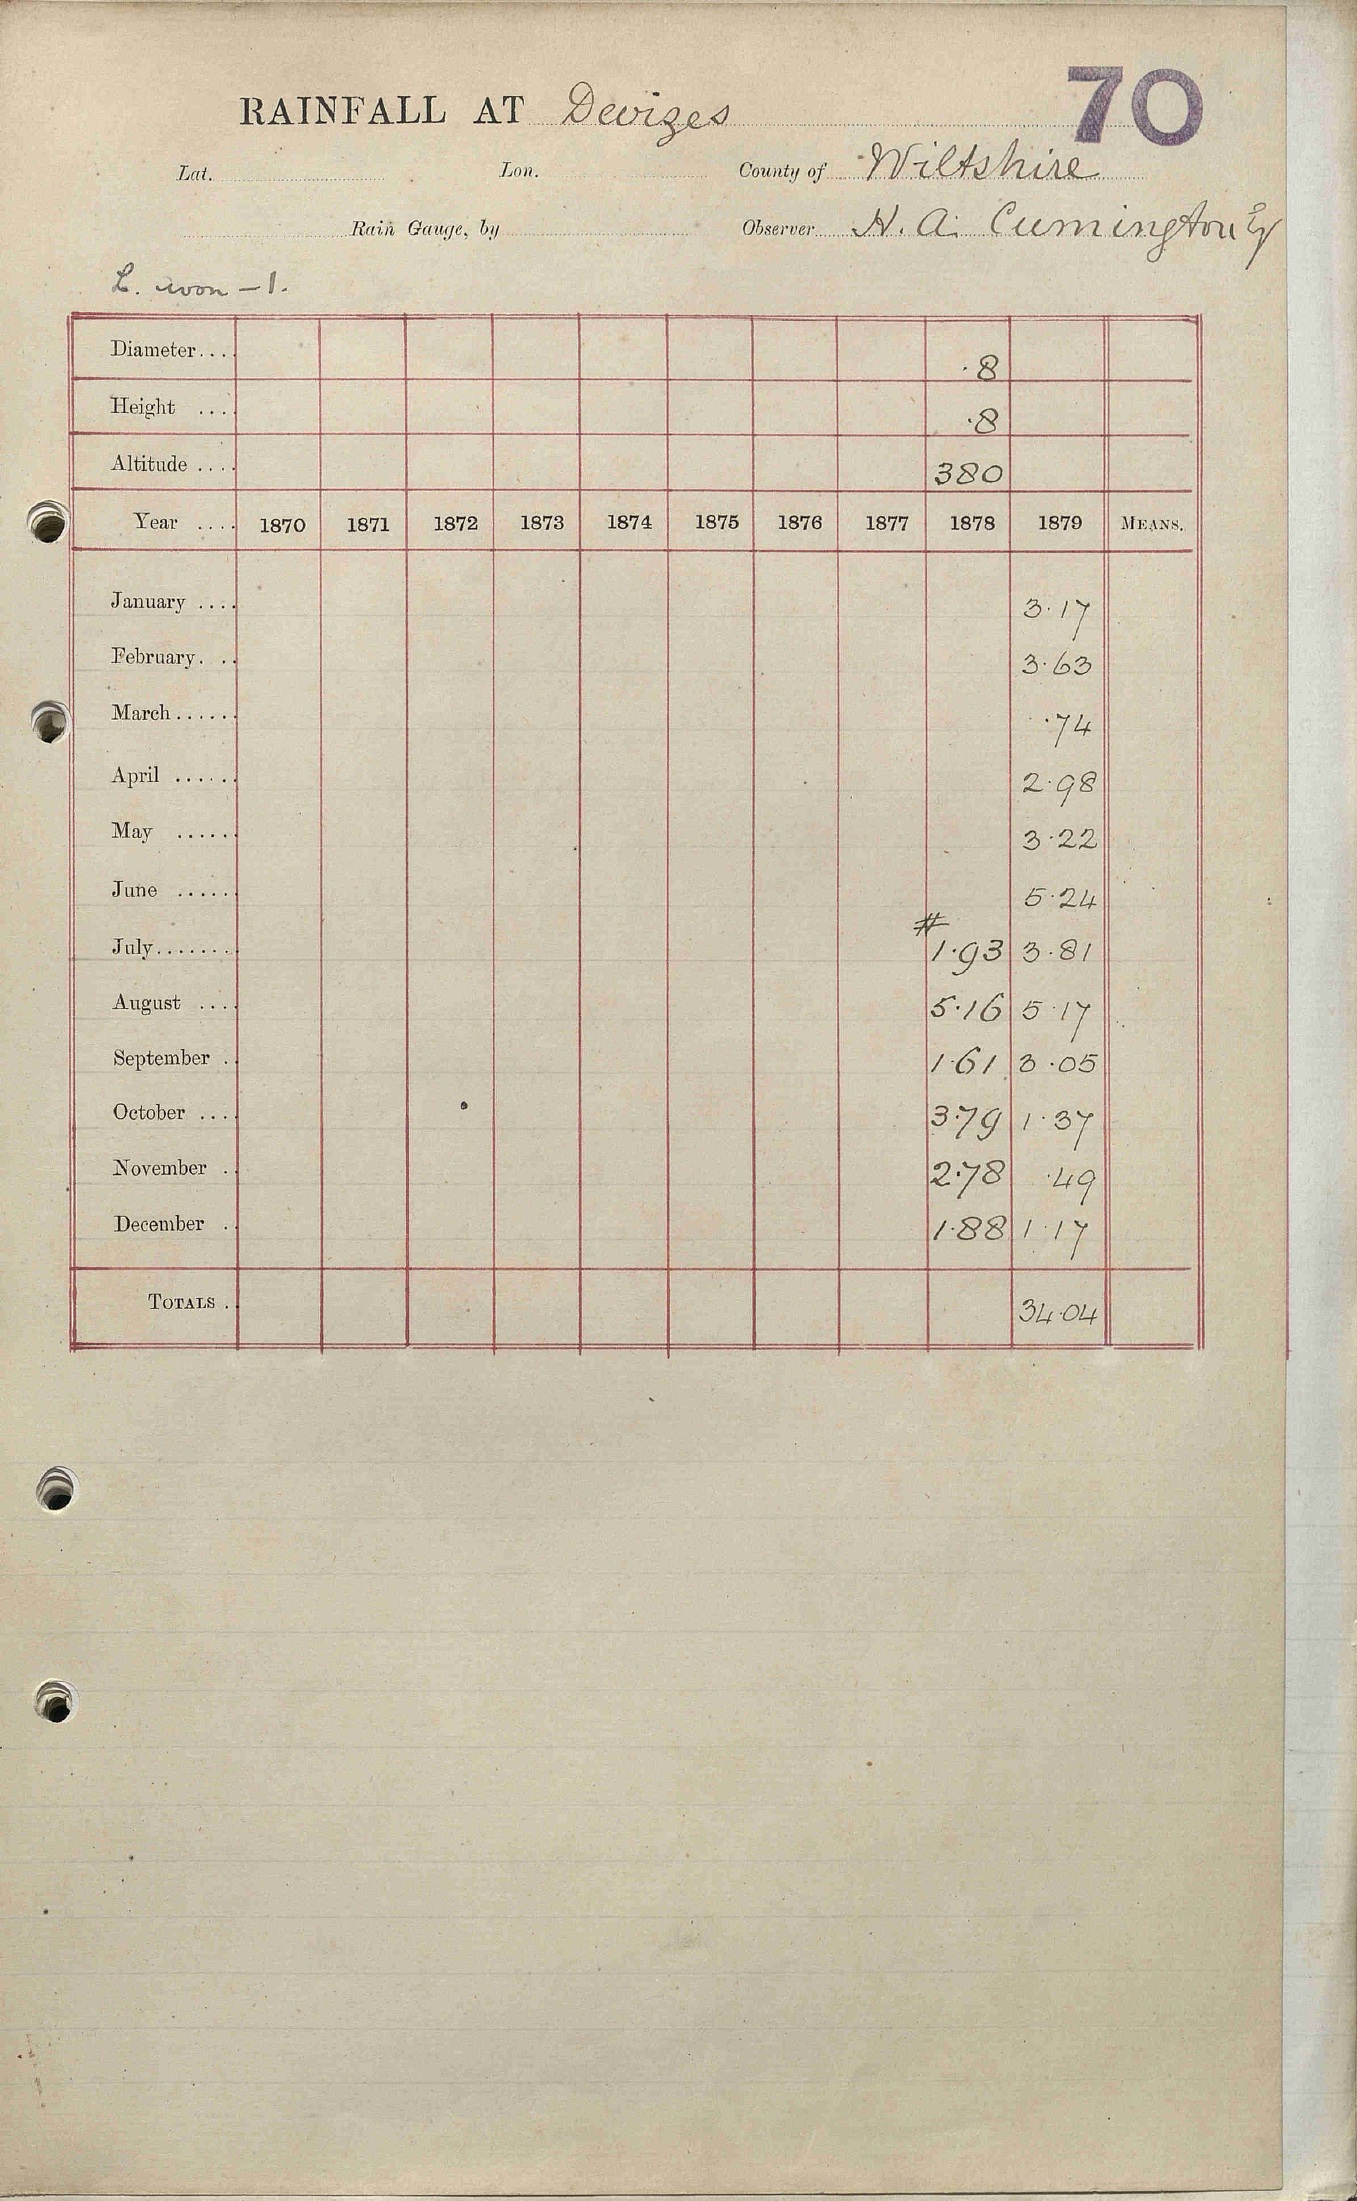 70
RAINFALL AT Devizes
Lat. Lon. County of Wiltshire
Rain Gauge, by Observer H. A. Cumington Esq
L. avon – 1.
Diameter.... ·8
Height .... ·8
Altitude .... 380
Year .... 1870 1871 1872 1873 1874 1875 1876 1877 1878 1879 MEANS.
January .... 3·17
February. .. 3·63
March...... ·74
April ...... 2·98
May ...... 3·22
June ...... 5·24
#
July........ 1·93 3·81
August .... 5·16 5·17
September . 1·61 3·05
October .... 3·79 1·37
November . 2·78 ·49
December . 1·88 1·17
TOTALS . 34·04